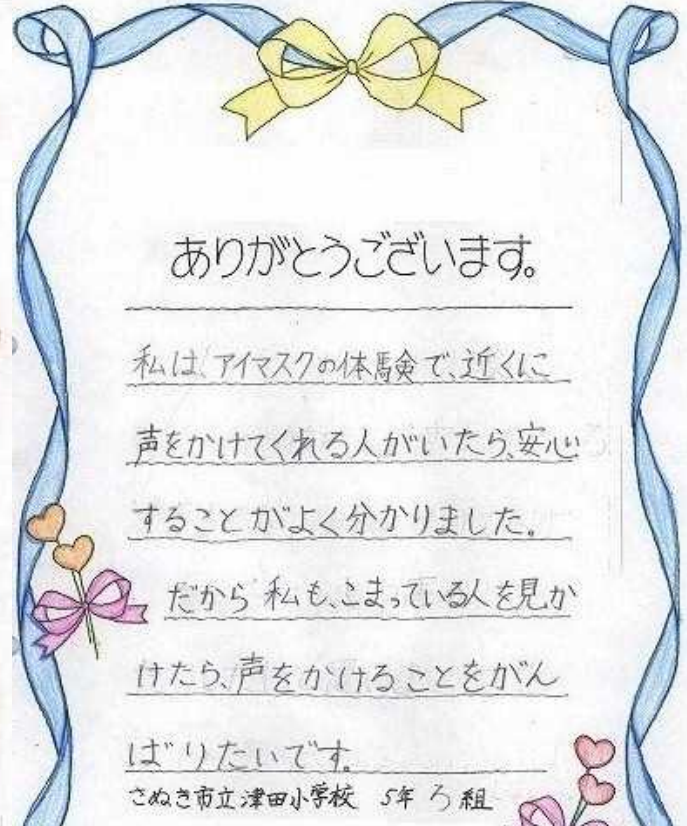 ありがとうございます。
私は、アイマスクの体験で、近くに
声をかけてくれる人がいたら、安心
することがよく分かりました。
だから私も、こまっている人を見か
けたら、声をかけることをがん
ばりたいです。
さぬき市立津田小学校 5年 ろ組